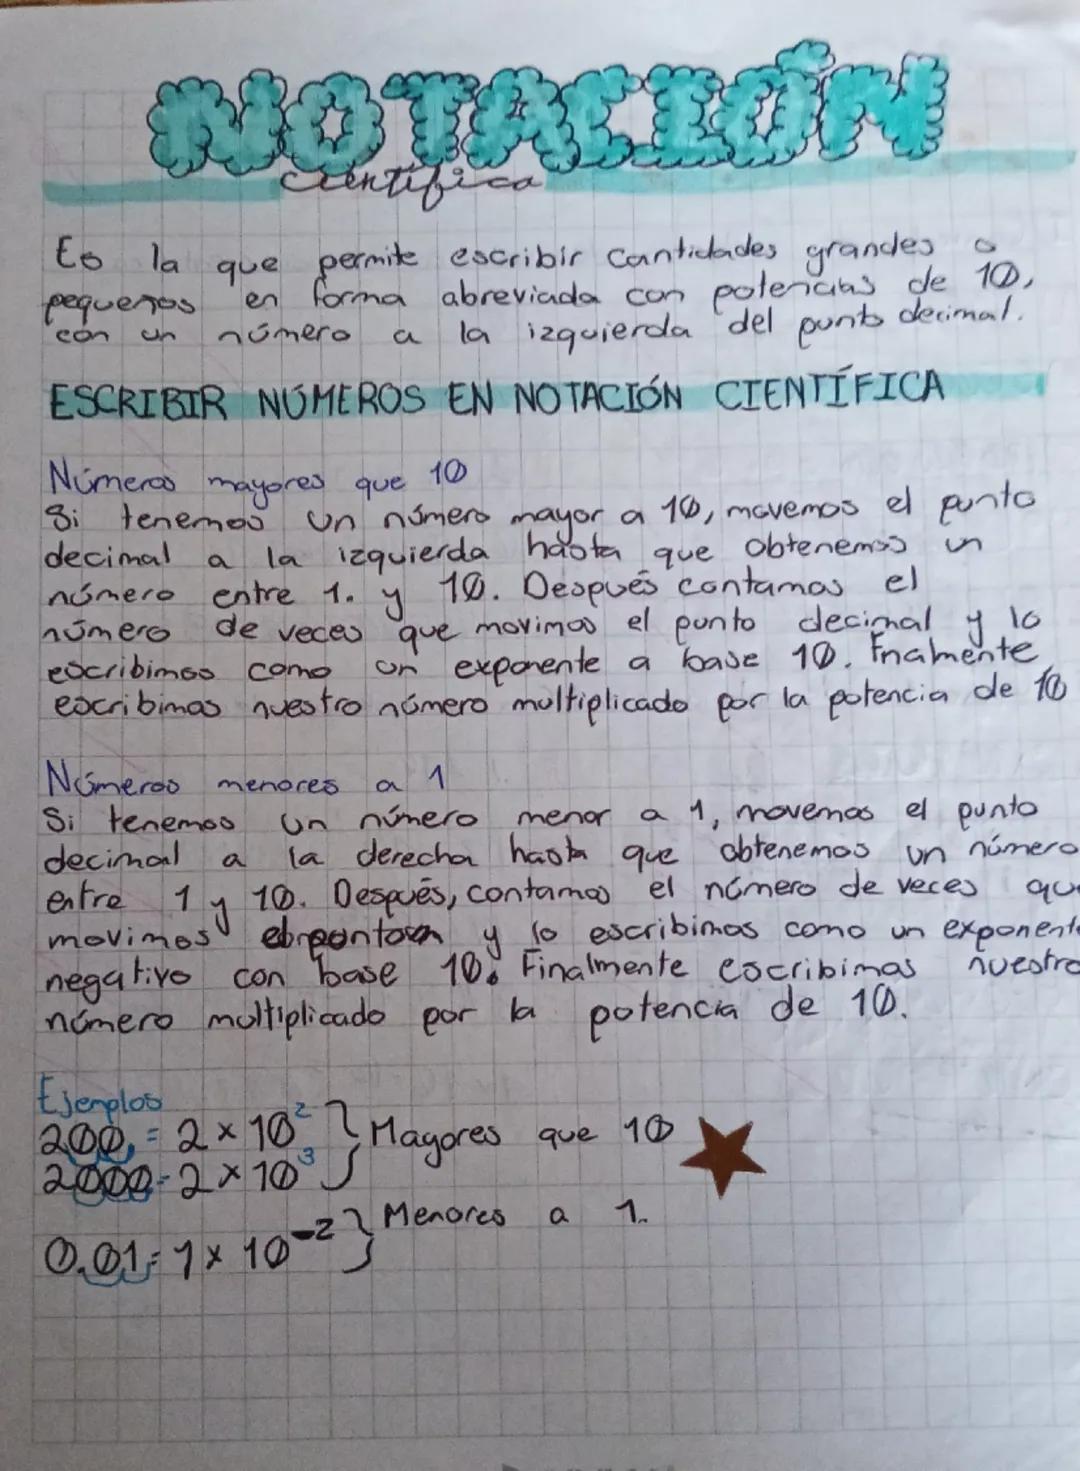 NOTACIÓN
científica
Es la que permite escribir cantidades grandes o
pequeños en forma abreviada con potencias de 10,
con un número a la izquierda del punto decimal.
ESCRIBIR NÚMEROS EN NOTACIÓN CIENTÍFICA
Números mayores que 10
Si tenemos un número mayor a 10, movemos el punto
decimal a la izquierda hasta que obtenemos un
número entre 1. y 10. Después contamos el
número de veces que movimos el punto decimal y lo
escribimos como un exponente a base 10. Fnalmente
escribimos nuestro número multiplicado por la potencia de 10
Números menores a 1
Si tenemos un número menor a 1, movemos el punto
decimal a la derecha hasta que obtenemos un número
entre 1 y 10. Después, contamos el número de veces que
movimos y lo escribimos como un exponente
negativo con base 10. Finalmente escribimos nuestro
número multiplicado por la potencia de 10.
Ejemplos
200. = 2 × 10² } Mayores que 10
2000 = 2 × 10³
0.01 = 1 × 10⁻² } Menores a 1.